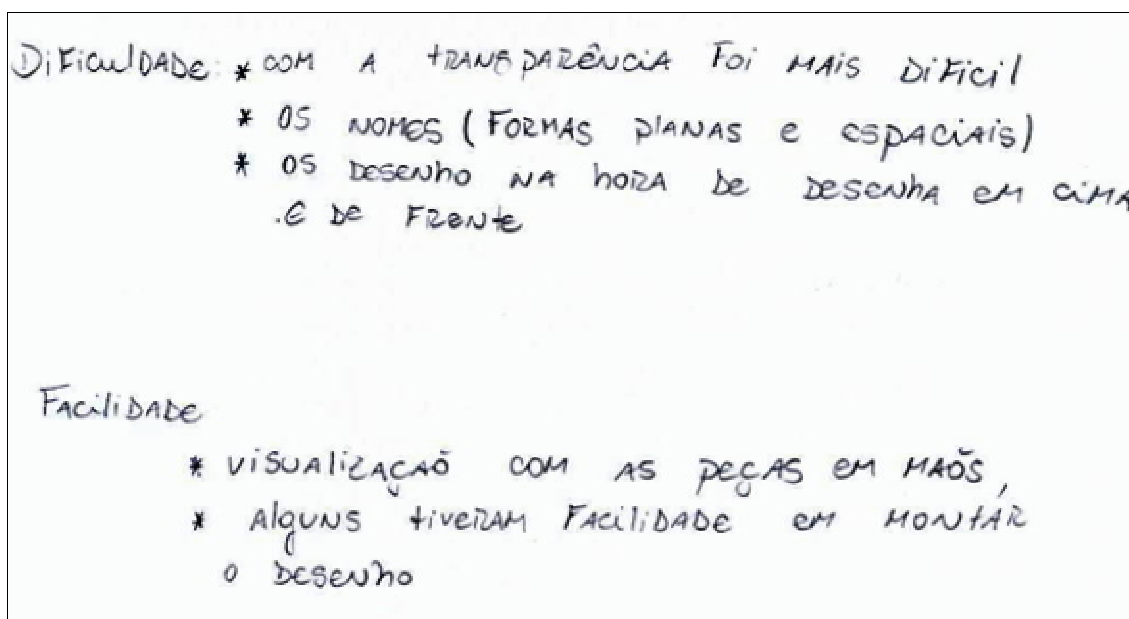 Dificuldade: * com a transparência foi mais dificil
* os nomes (formas planas e espaciais)
* os desenho na hora de desenha em cima
.e de frente
Facilidade
* visualização com as peças em mãos,
* Alguns tiveram facilidade em montar
o desenho